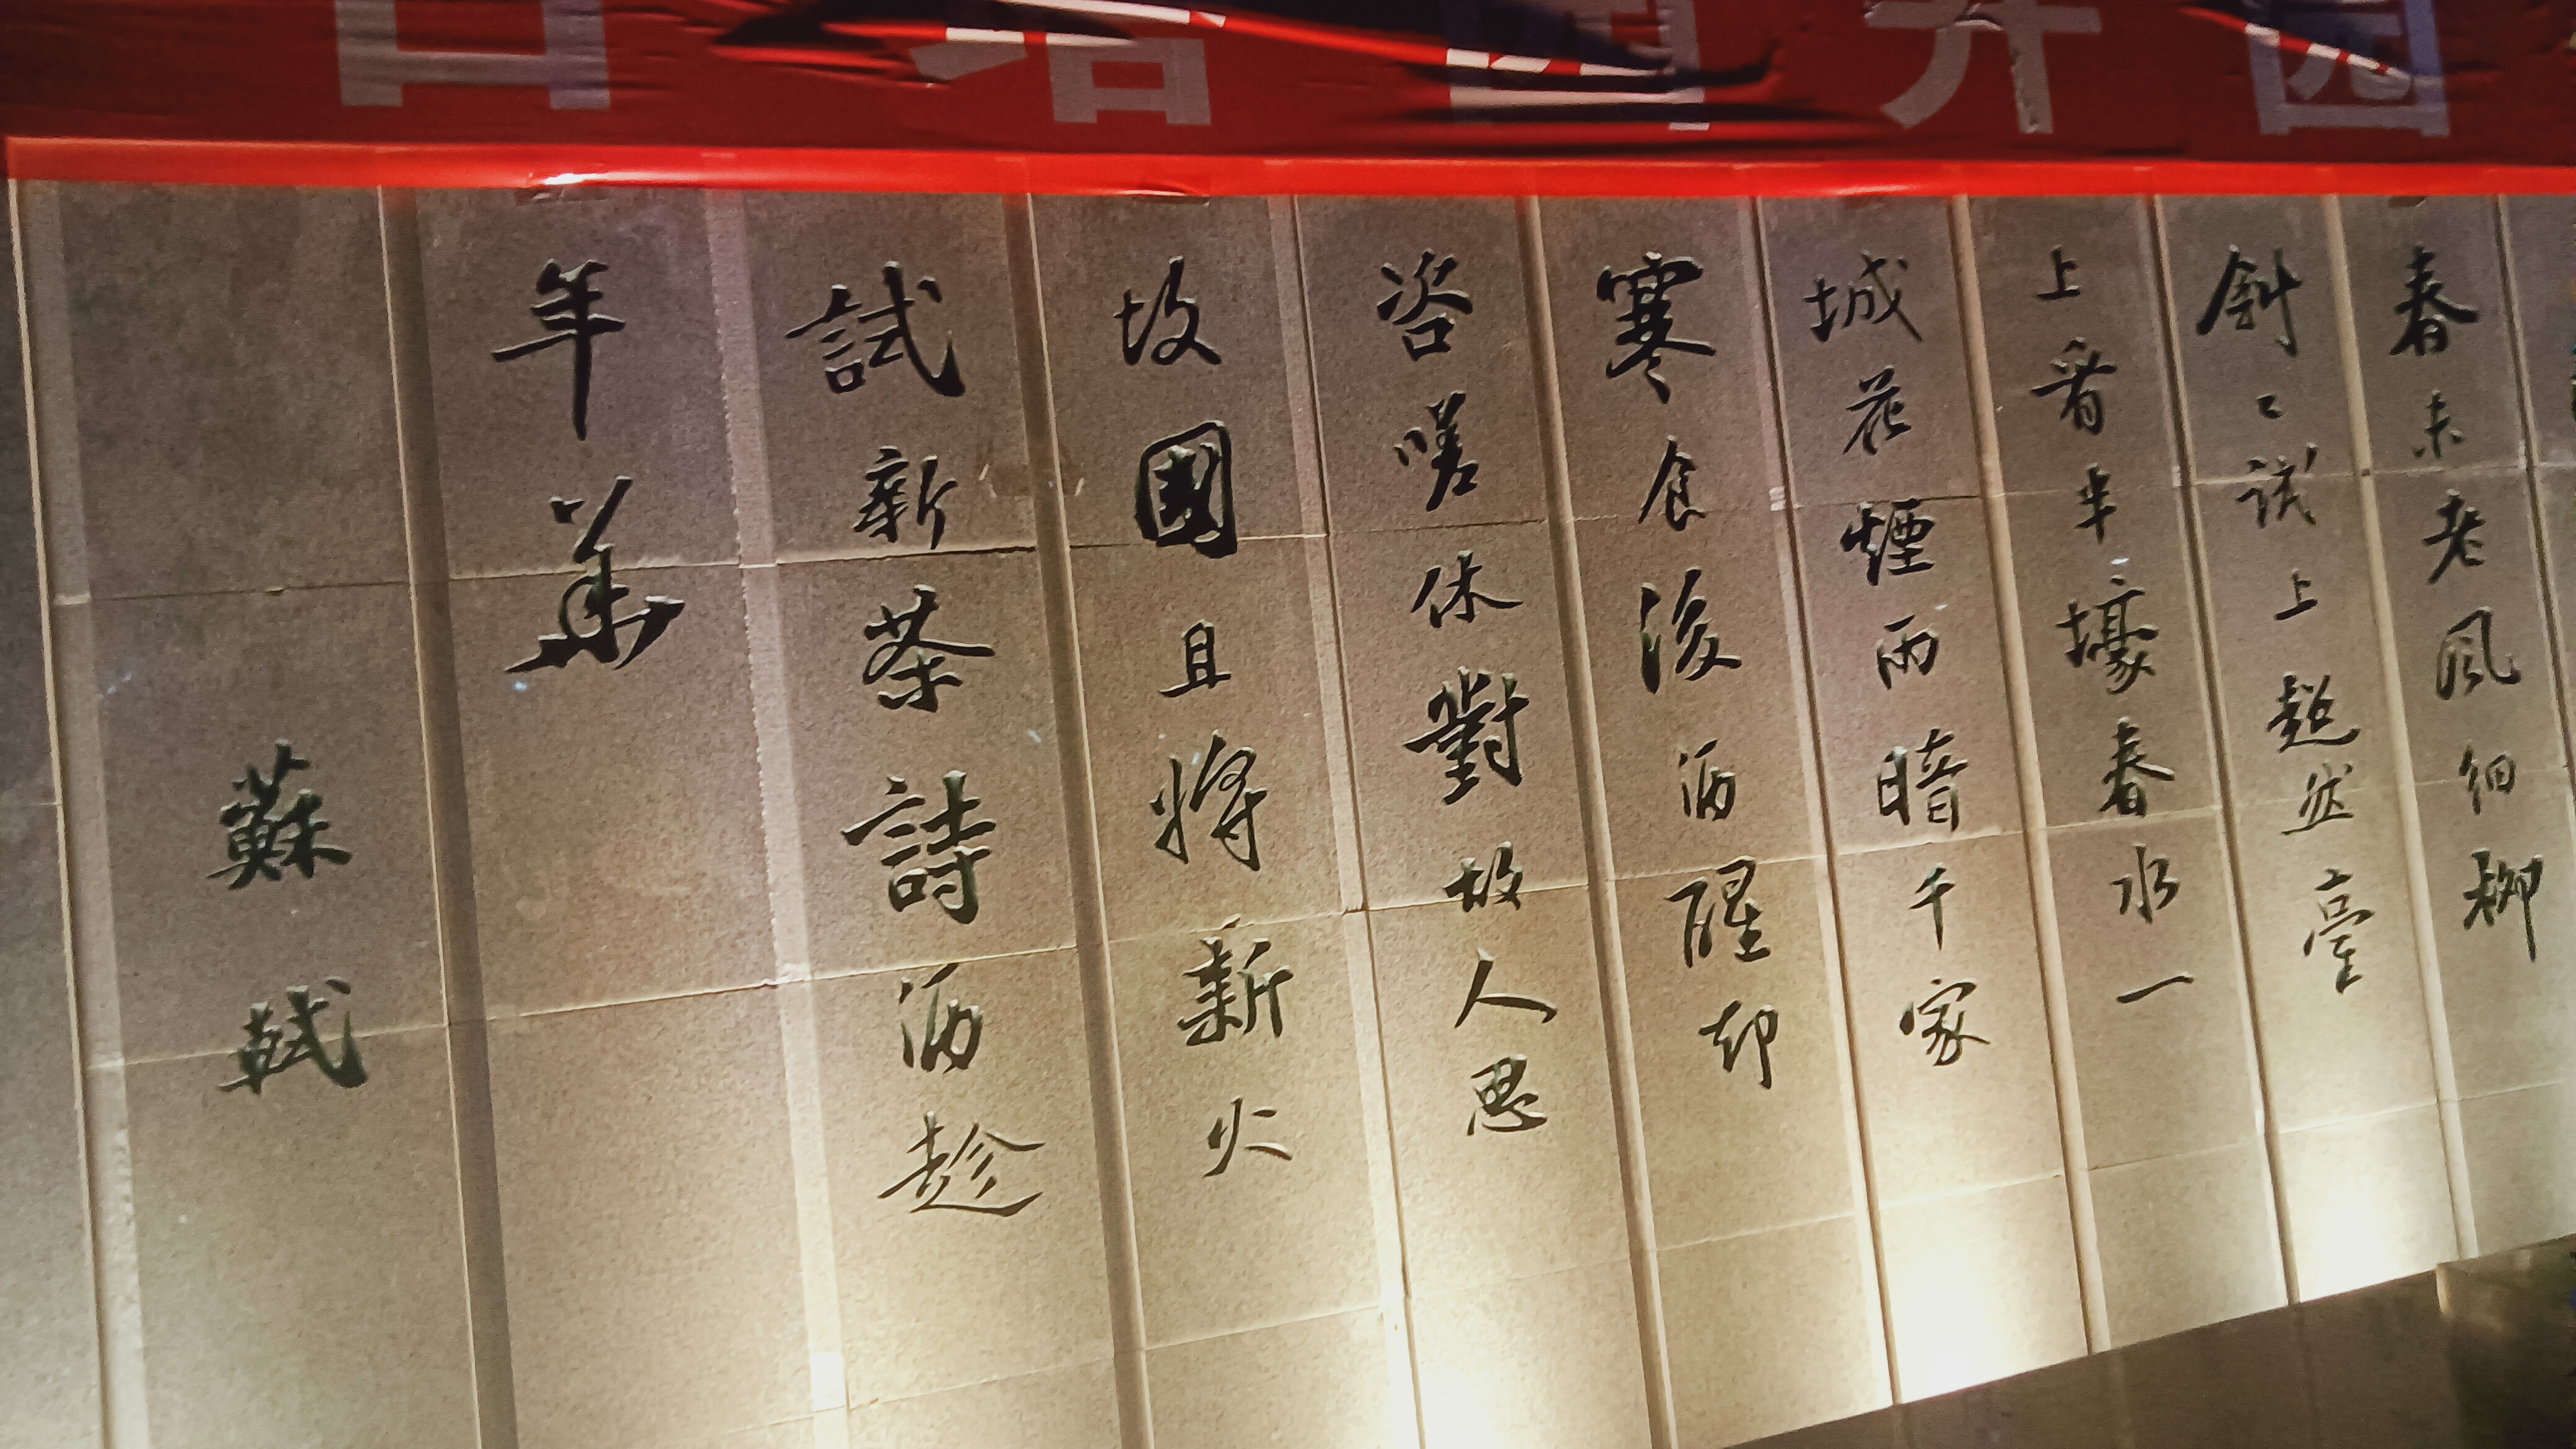 开园
春未老風細柳
斜〻試上超然臺
上看半壕春水一
城花煙雨暗千家
寒食後酒醒却
咨嗟休對故人思
故國且將新火
試新茶詩酒趁
年華
蘇軾